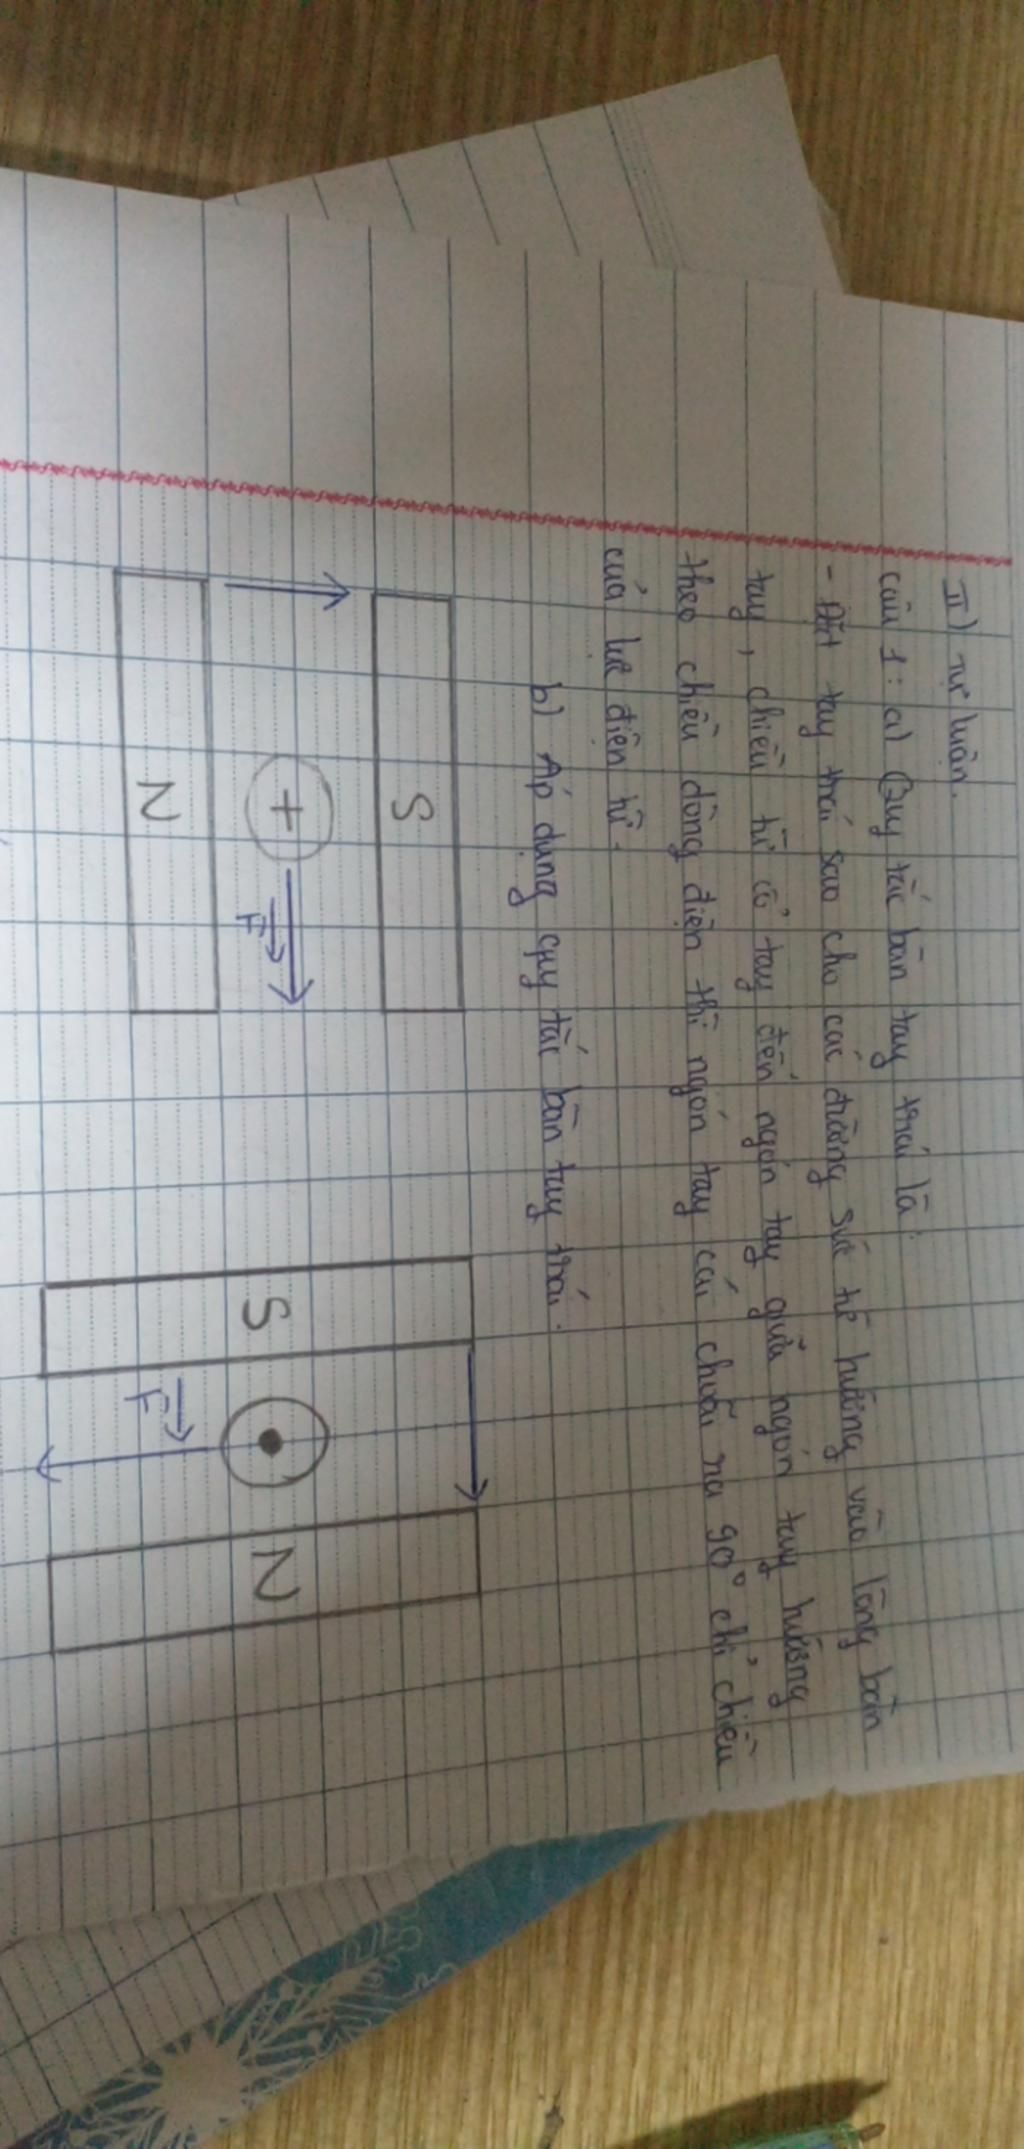 II) Tự luận.
Câu 1: a) Quy tắc bàn tay trái là:
- Đặt tay trái sao cho các đường sức từ hướng vào lòng bàn
tay, chiều từ cổ tay đến ngón tay giữa ngón tay hướng
theo chiều dòng điện thì ngón tay cái choãi ra 90° chỉ chiều
của lực điện từ.
b) Áp dụng quy tắc bàn tay trái.
S
+
F
N
S
N
F